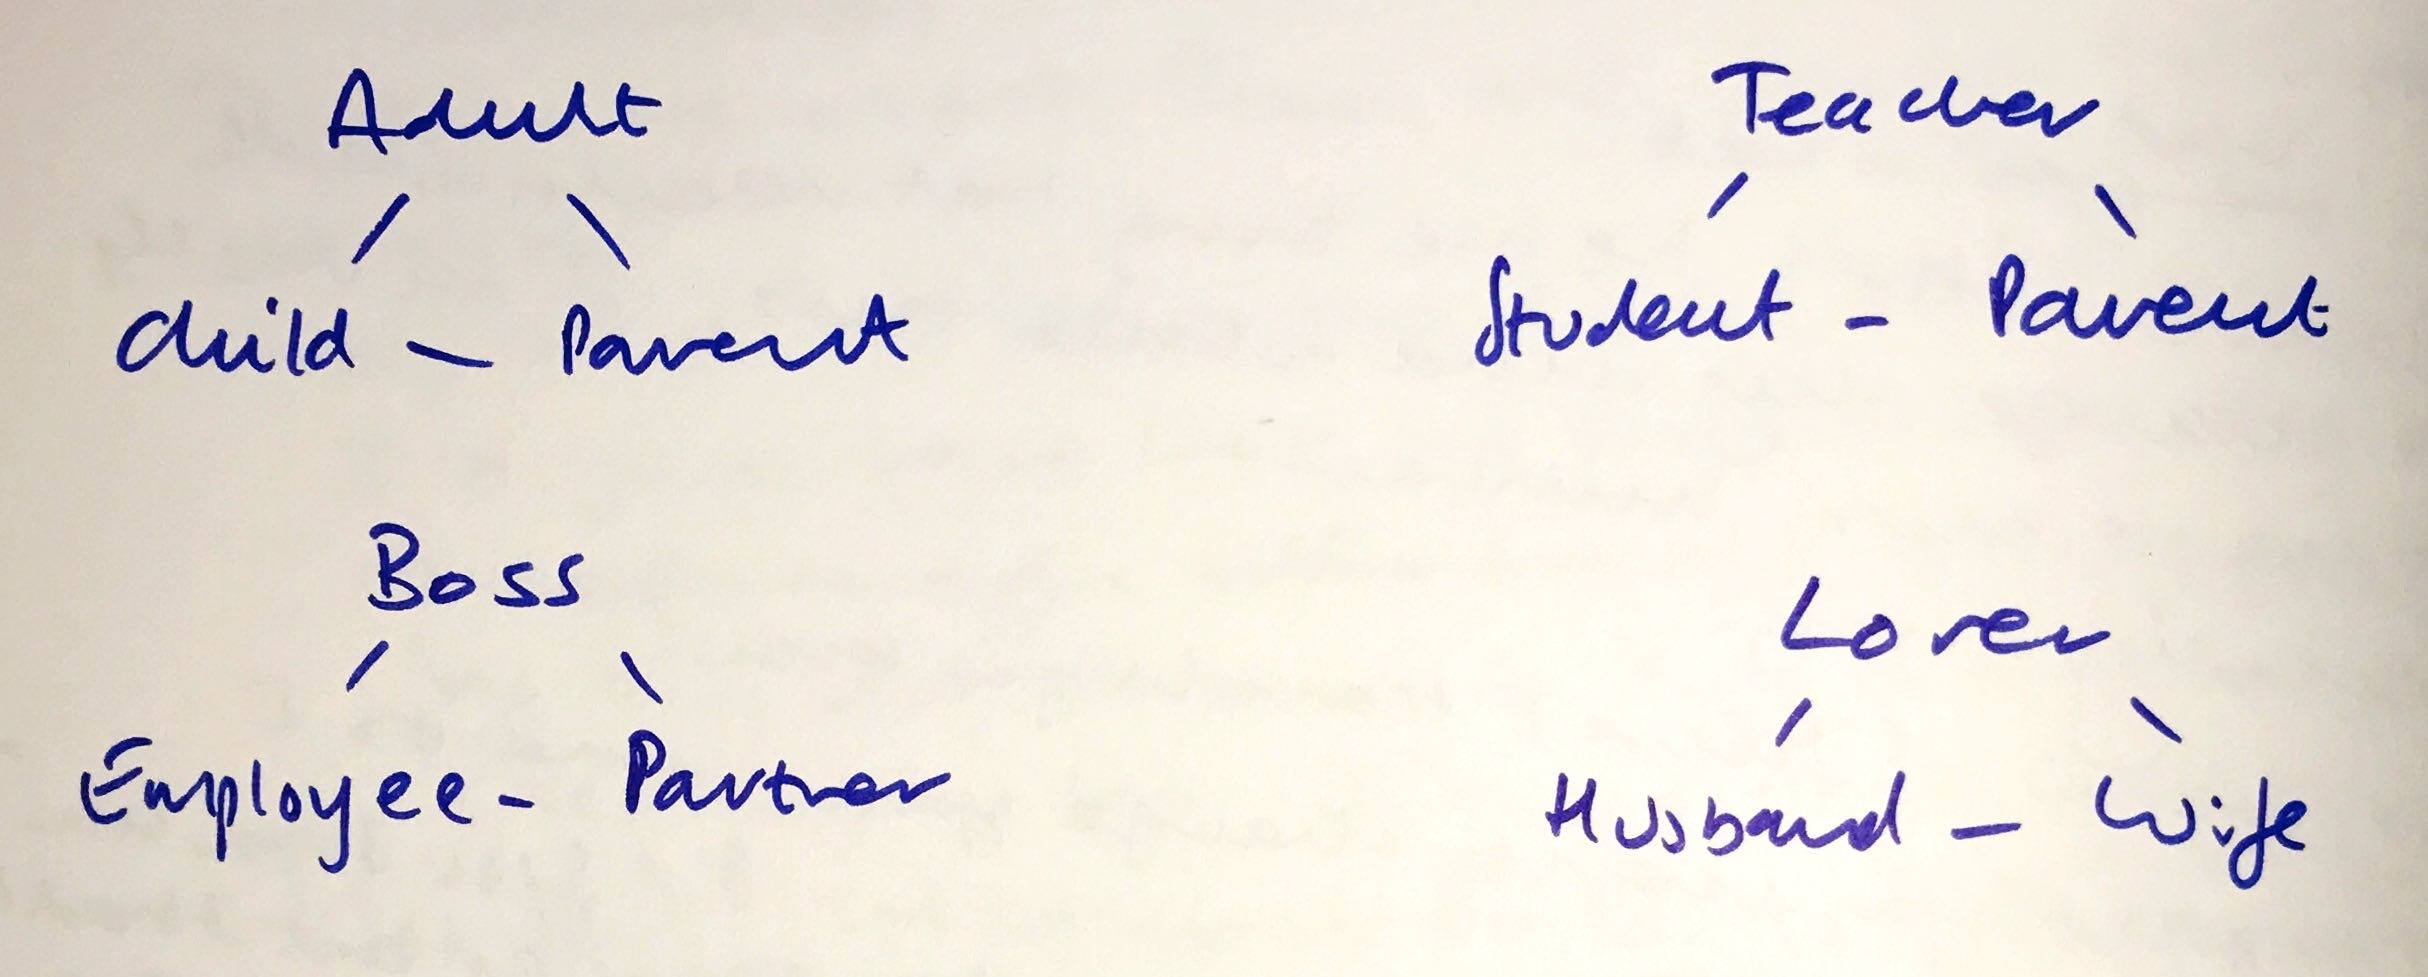 Adult
Child - Parent
Teacher
Student - Parent
Boss
Employee - Partner
Lover
Husband - Wife